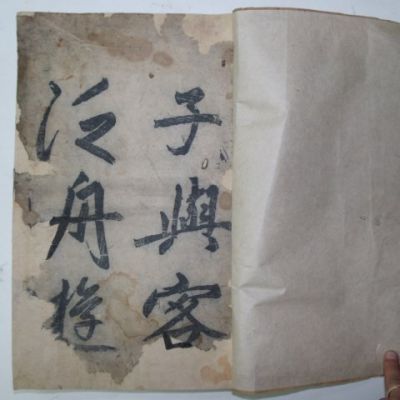 子與客
泛舟遊